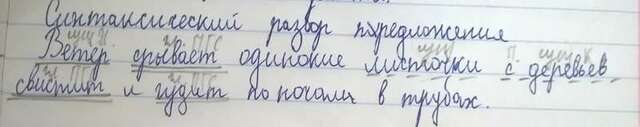 Синтаксический разбор предложения
Ветер срывает одинокие листочки с деревьев
свистит и гудит по ночам в трубах.